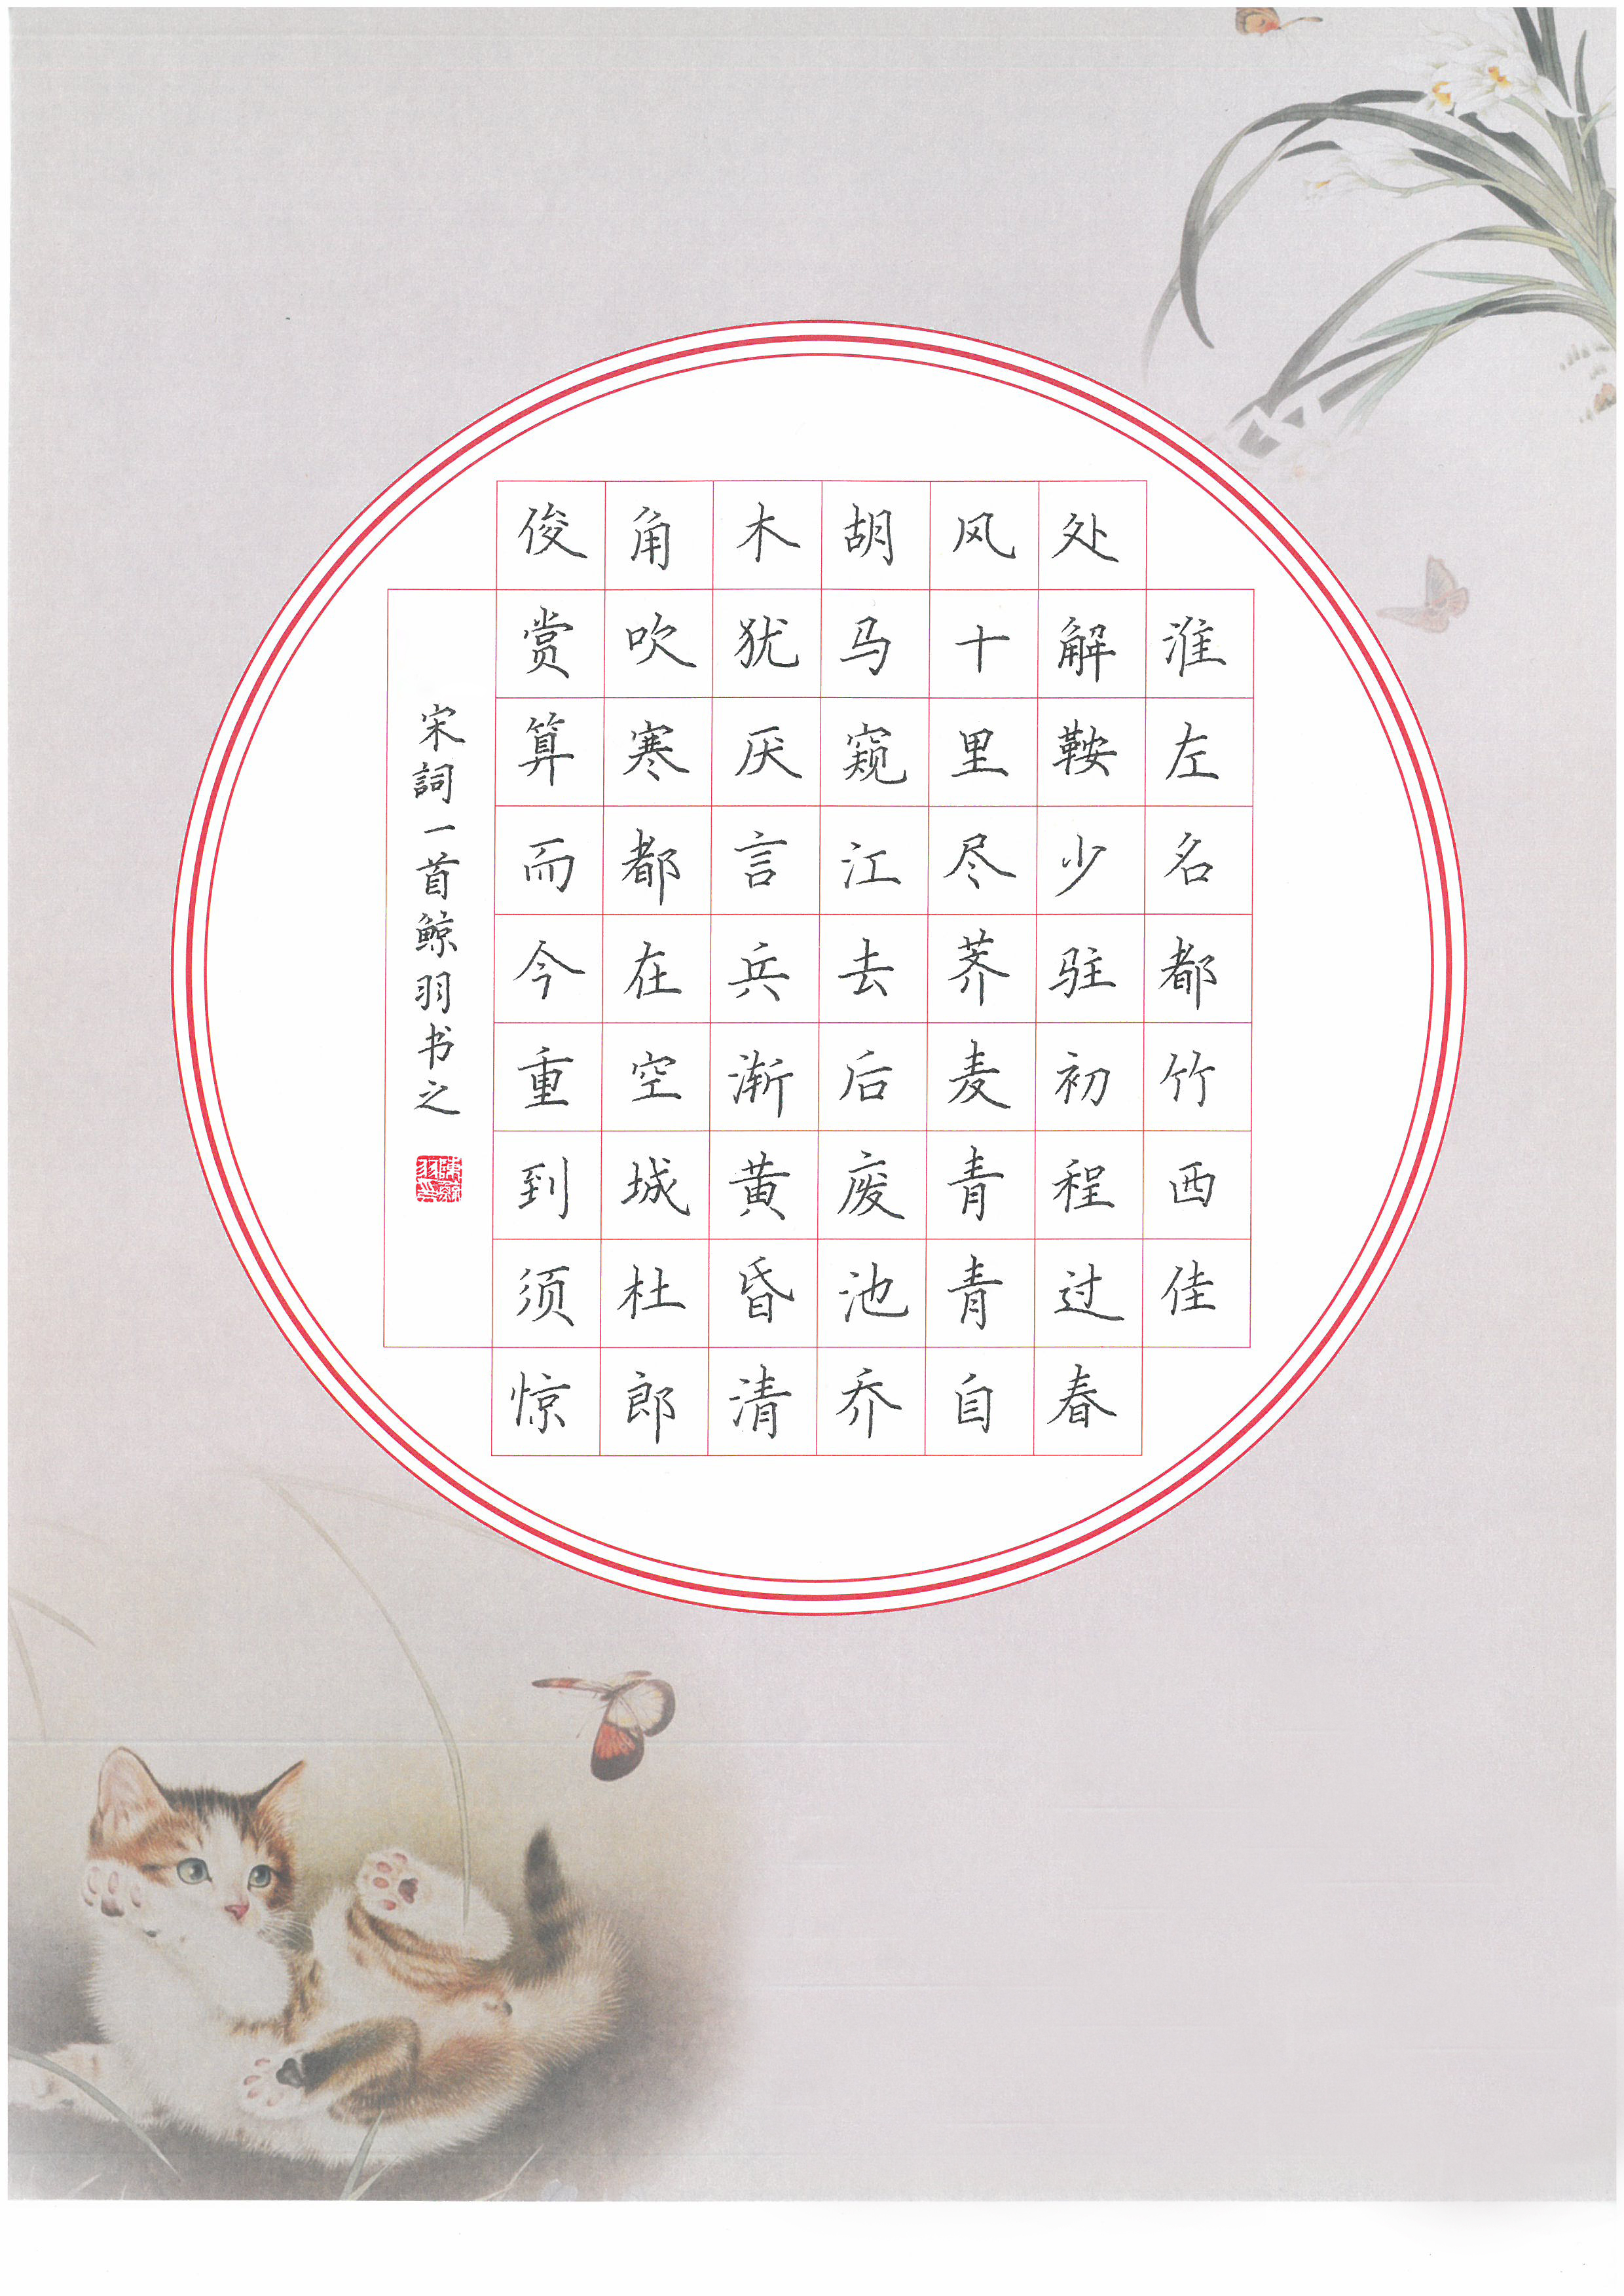 淮左名都竹西佳
处解鞍少驻初程过春
风十里尽荠麦青青自
胡马窥江去后废池乔
木犹厌言兵渐黄昏清
角吹寒都在空城杜郎
俊赏算而今重到须惊
宋詞一首鲸羽书之